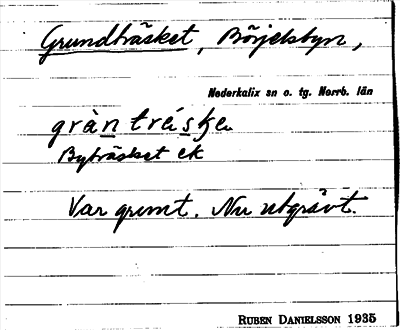 Grundträsket, Börjelsbyn,
Nederkalix sn o. tg. Norrb. län
gràn tráske
Byträsket ek
Var grunt. Nu utgrävt.
RUBEN DANIELSSON 1935